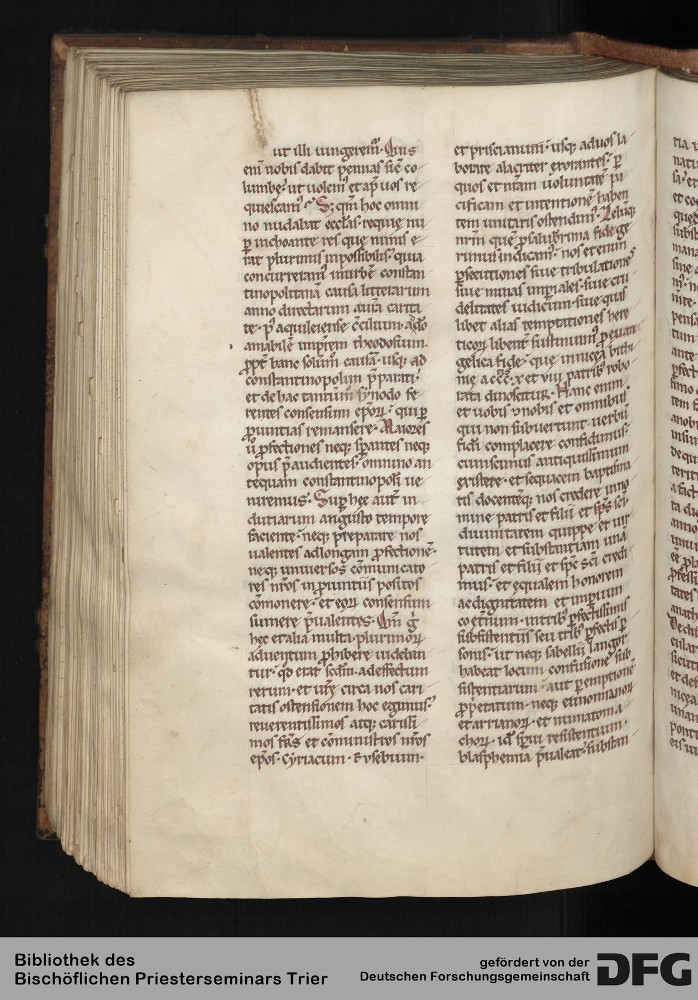 ut illi iungerem᷒. Quis
eni᷒ nobis dabit pennas sic̄ co
lumbe᷒. ut uolem᷒ et ap̄ uos re
quiescam᷒? S; qm̄ hoc omni
no nudabat ecclas. requie nu
p̱ inchoante res que nimis e
rat plurimis inpossibilis. quia
concurreram᷒ in urbē constan
tinopolitanā causa litterarum
anno directarum a ur̄a carita
te. p᷒ aquileiense c̄cilium. ad do
amabilē imp̄rem theodosium.
ꝓpt̄ hanc solum̄ causā. usq; ad
constantinopolim p̄parati.
et de hac tantum̄ synodo fe
rentes consensum ep̄oꝝ. qui p̱
ꝓuintias remansere. Maiores
u̅ ꝓfectiones neq; sp̱antes neq;
opus p̄audientes. omnino an
tequam constantinopoli ue
niremus. Sup̱ hec aut̄ in
dutiarum angusto tempore
faciente. neq; preparare nos
ualentes ad longam ꝓfectionē.
neq; uniuersos c̄municato
res nr̄os in ꝓuintiis positos
c̄monere. et eoꝝ consensum
sumere p̄ualentes. Qm̄ g̊
hec et alia multa. plurimoꝝ
aduentum ꝓhibere uideban
tur. qd̄ erat scdm̄. ad effectum
rerum. et ur̄e circa nos cari
tatis ostensionem hoc egimus.
reuerentissimos atq; carissi
mos fr̄s et c̄ministros nr̄os
ep̄os. Cyriacum. Eusebium.
et priscianum. usq; ad uos la
borare alacriter exorantes. p̱
quos et nr̄am uoluntatē pa
cificam et intentionē haben
tem unitatis ostendim᷒. Zelūq;
nr̄m quē ꝓ saluberrima fide ge
rimus indicam᷒. nos etenim
p̱secutiones siue tribulationes
siue minas imp̱iales. siue cru
delitates iudicum. siue quas
libet alias temptationes here
ticoꝝ libent̄ sustinuim᷒ ꝓ euan
gelica fide. que in nicea bithi
nie a ccc. x. et viii patrib᷒ robo
rata dinoscitur. Hanc enim
et uobis ⁊ nobis et omnibus
qui non subuertunt uerbū
fidei complacere confidimus.
cumscimus antiquissimam
existere. et sequacem baptisma
tis docentēq; nos credere in no
mine patris et filii et sp̄s sc̄i.
diuinitatem quippe et uir
tutem et substantiam una
patris et filii et sp̄s sc̄i credi
mus. et equalem honorem
ac dignitatem et imperium
coet̄num. in trib᷒ p̱fectissimis
subsistentiis seu trib᷒ p̱fectis p̱
sonis. ut neq; sabellii langor
habeat locum confusione sub
sistentiarum. aut p̱emptione
ꝓp̱etatum. neq; eunomianoꝝ
et arrianoꝝ. et numatoma
choꝝ. id̄ sp̄ui resistentium.
blasphemia p̄ualeat. substan
Bibliothek des
Bischöflichen Priesterseminars Trier
gefördert von der
Deutschen Forschungsgemeinschaft
DFG